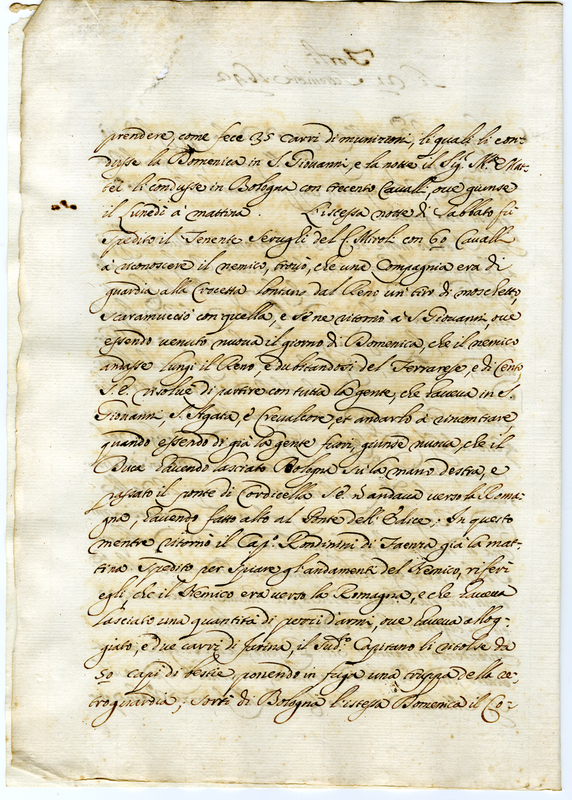 prendere, come fece 35 carri di munizioni, li quali li con-
dusse la Domenica in S. Giovanni, e la notte il Sig. M.se Mat-
tei li condusse in Bologna con trecento Cavalli, oue giunse
il Lunedì à mattina. L'istessa notte di Sabbato fù
spedito il Tenente Serugli del C. Miroli con 60 Cavalli
à riconoscere il nemico, trovò, che una Compagnia era di
guardia alla Crocetta lontano dal Reno un tiro di moschetto,
scaramucciò con quella, e se ne ritornò à S. Giovanni, oue
essendo venuto nuova il giorno di Domenica, che il nemico
andasse lungi il Reno, e dubitandosi del Ferrarese, e di Cento
S.E. risolue di partire con tutta la gente, che haueua in S.
Giovanni, S. Agata, e Crevalcore, et andarlo à rincontrare,
quando essendo di già la gente fuori, giunse nuova, che il
Duca havendo lasciato Bologna sù la mano destra, e
passato il ponte di Corticella se n'andaua verso la Roma-
gna, havendo fatto alto al Ponte dell'Idice. In questo
mentre ritornò il Cap.o Rondinini di Faenza già la mat-
tina spedito per spiare gl'andamenti del Nemico, riferì
egli che il Nemico era verso la Romagna, e che haueua
lasciato una quantità di pezzi d'armi, oue haueua allog-
giato, e due carri di farina, il Sud.o Capitano li ritolse da
50 capi di bestie, ponendo in fuga una truppa della re-
troguardia; Sortì di Bologna l'istessa Domenica il Co-